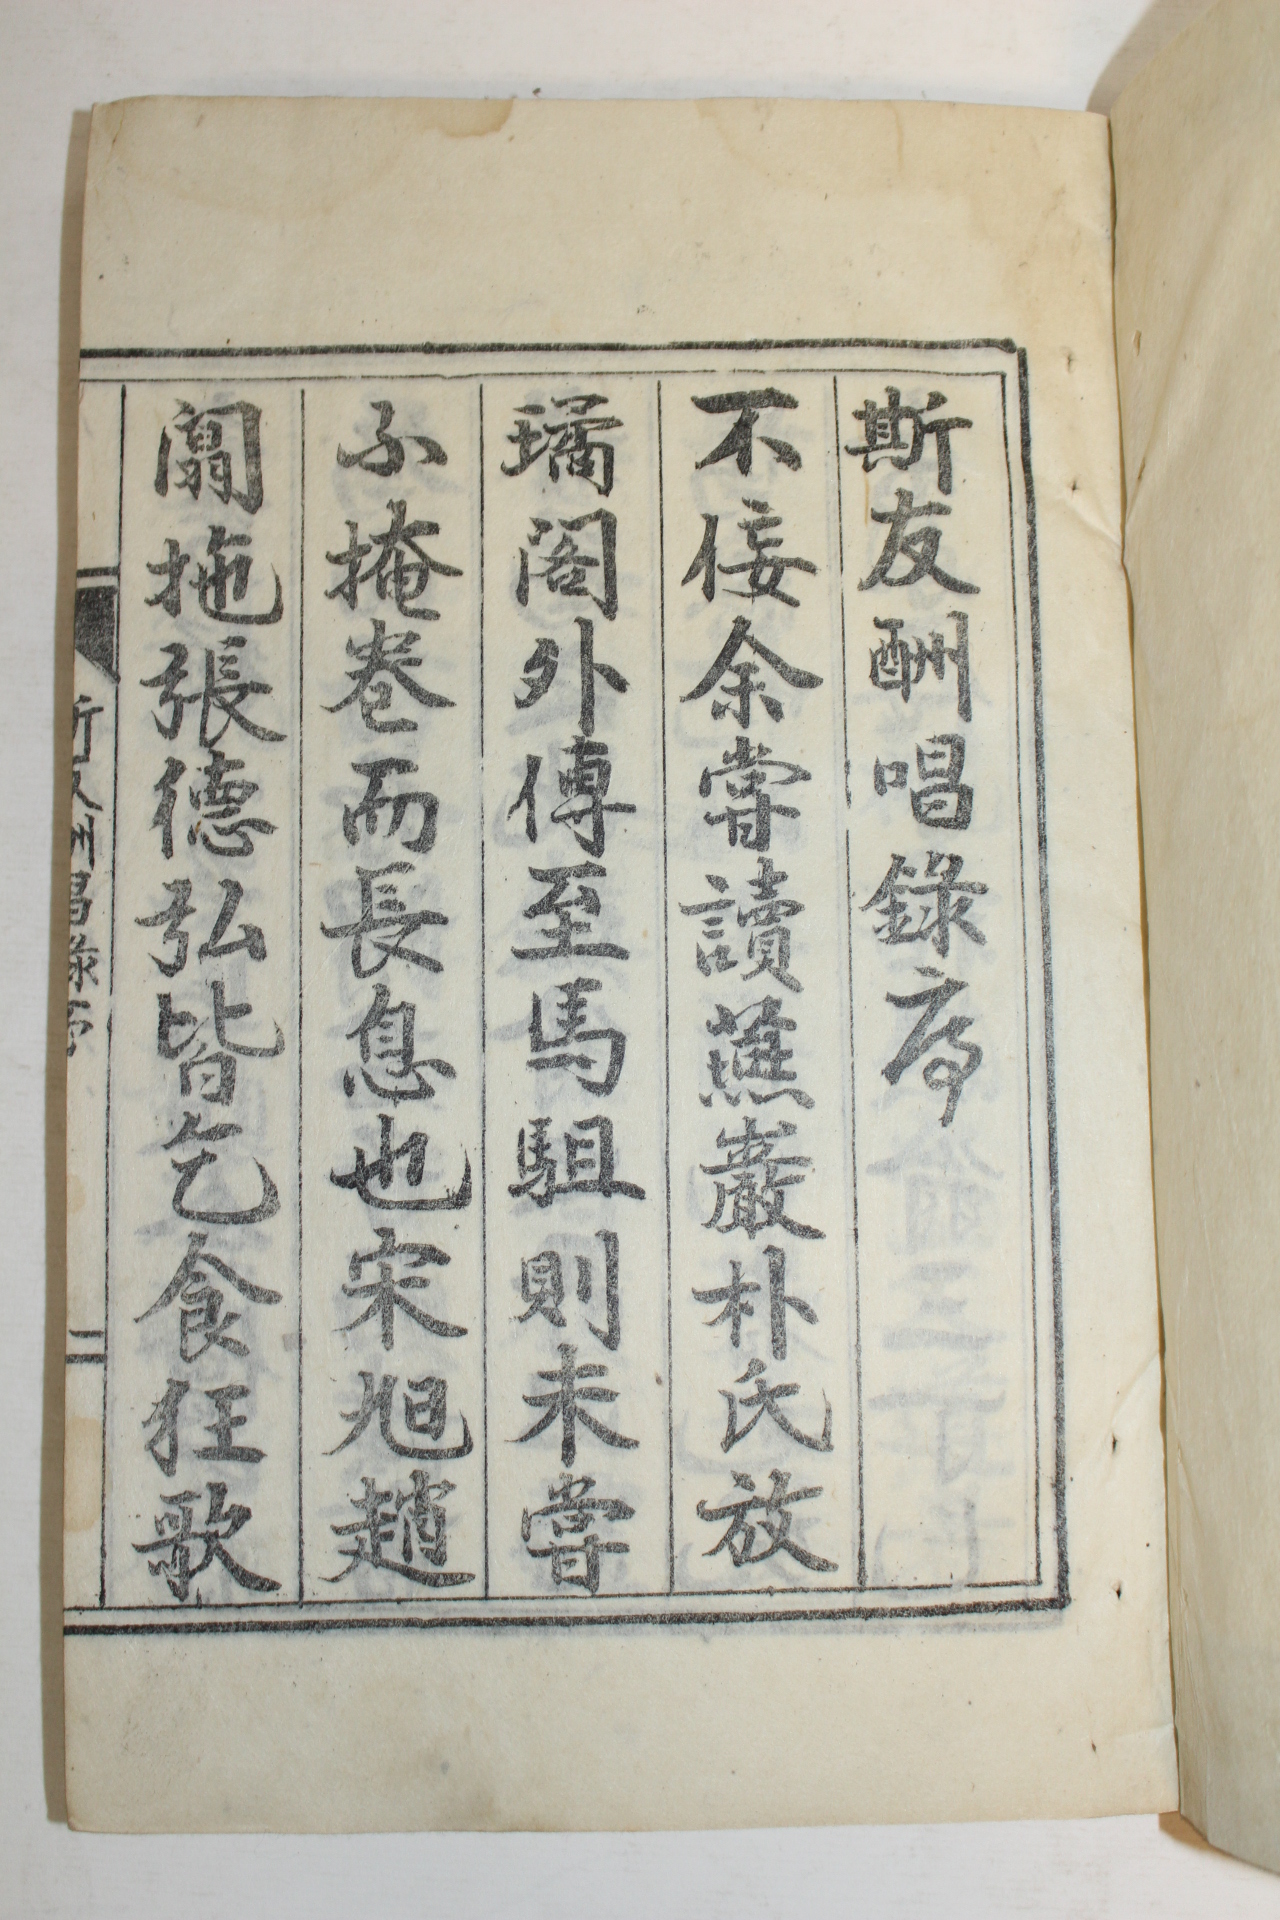 斯友酬唱錄序
不佞余甞讀燕巖朴氏放
璚閣外傳至馬駔則未甞
不掩卷而長息也宋旭趙
闒拖張德弘皆乞食狂歌
斯友酬唱錄序